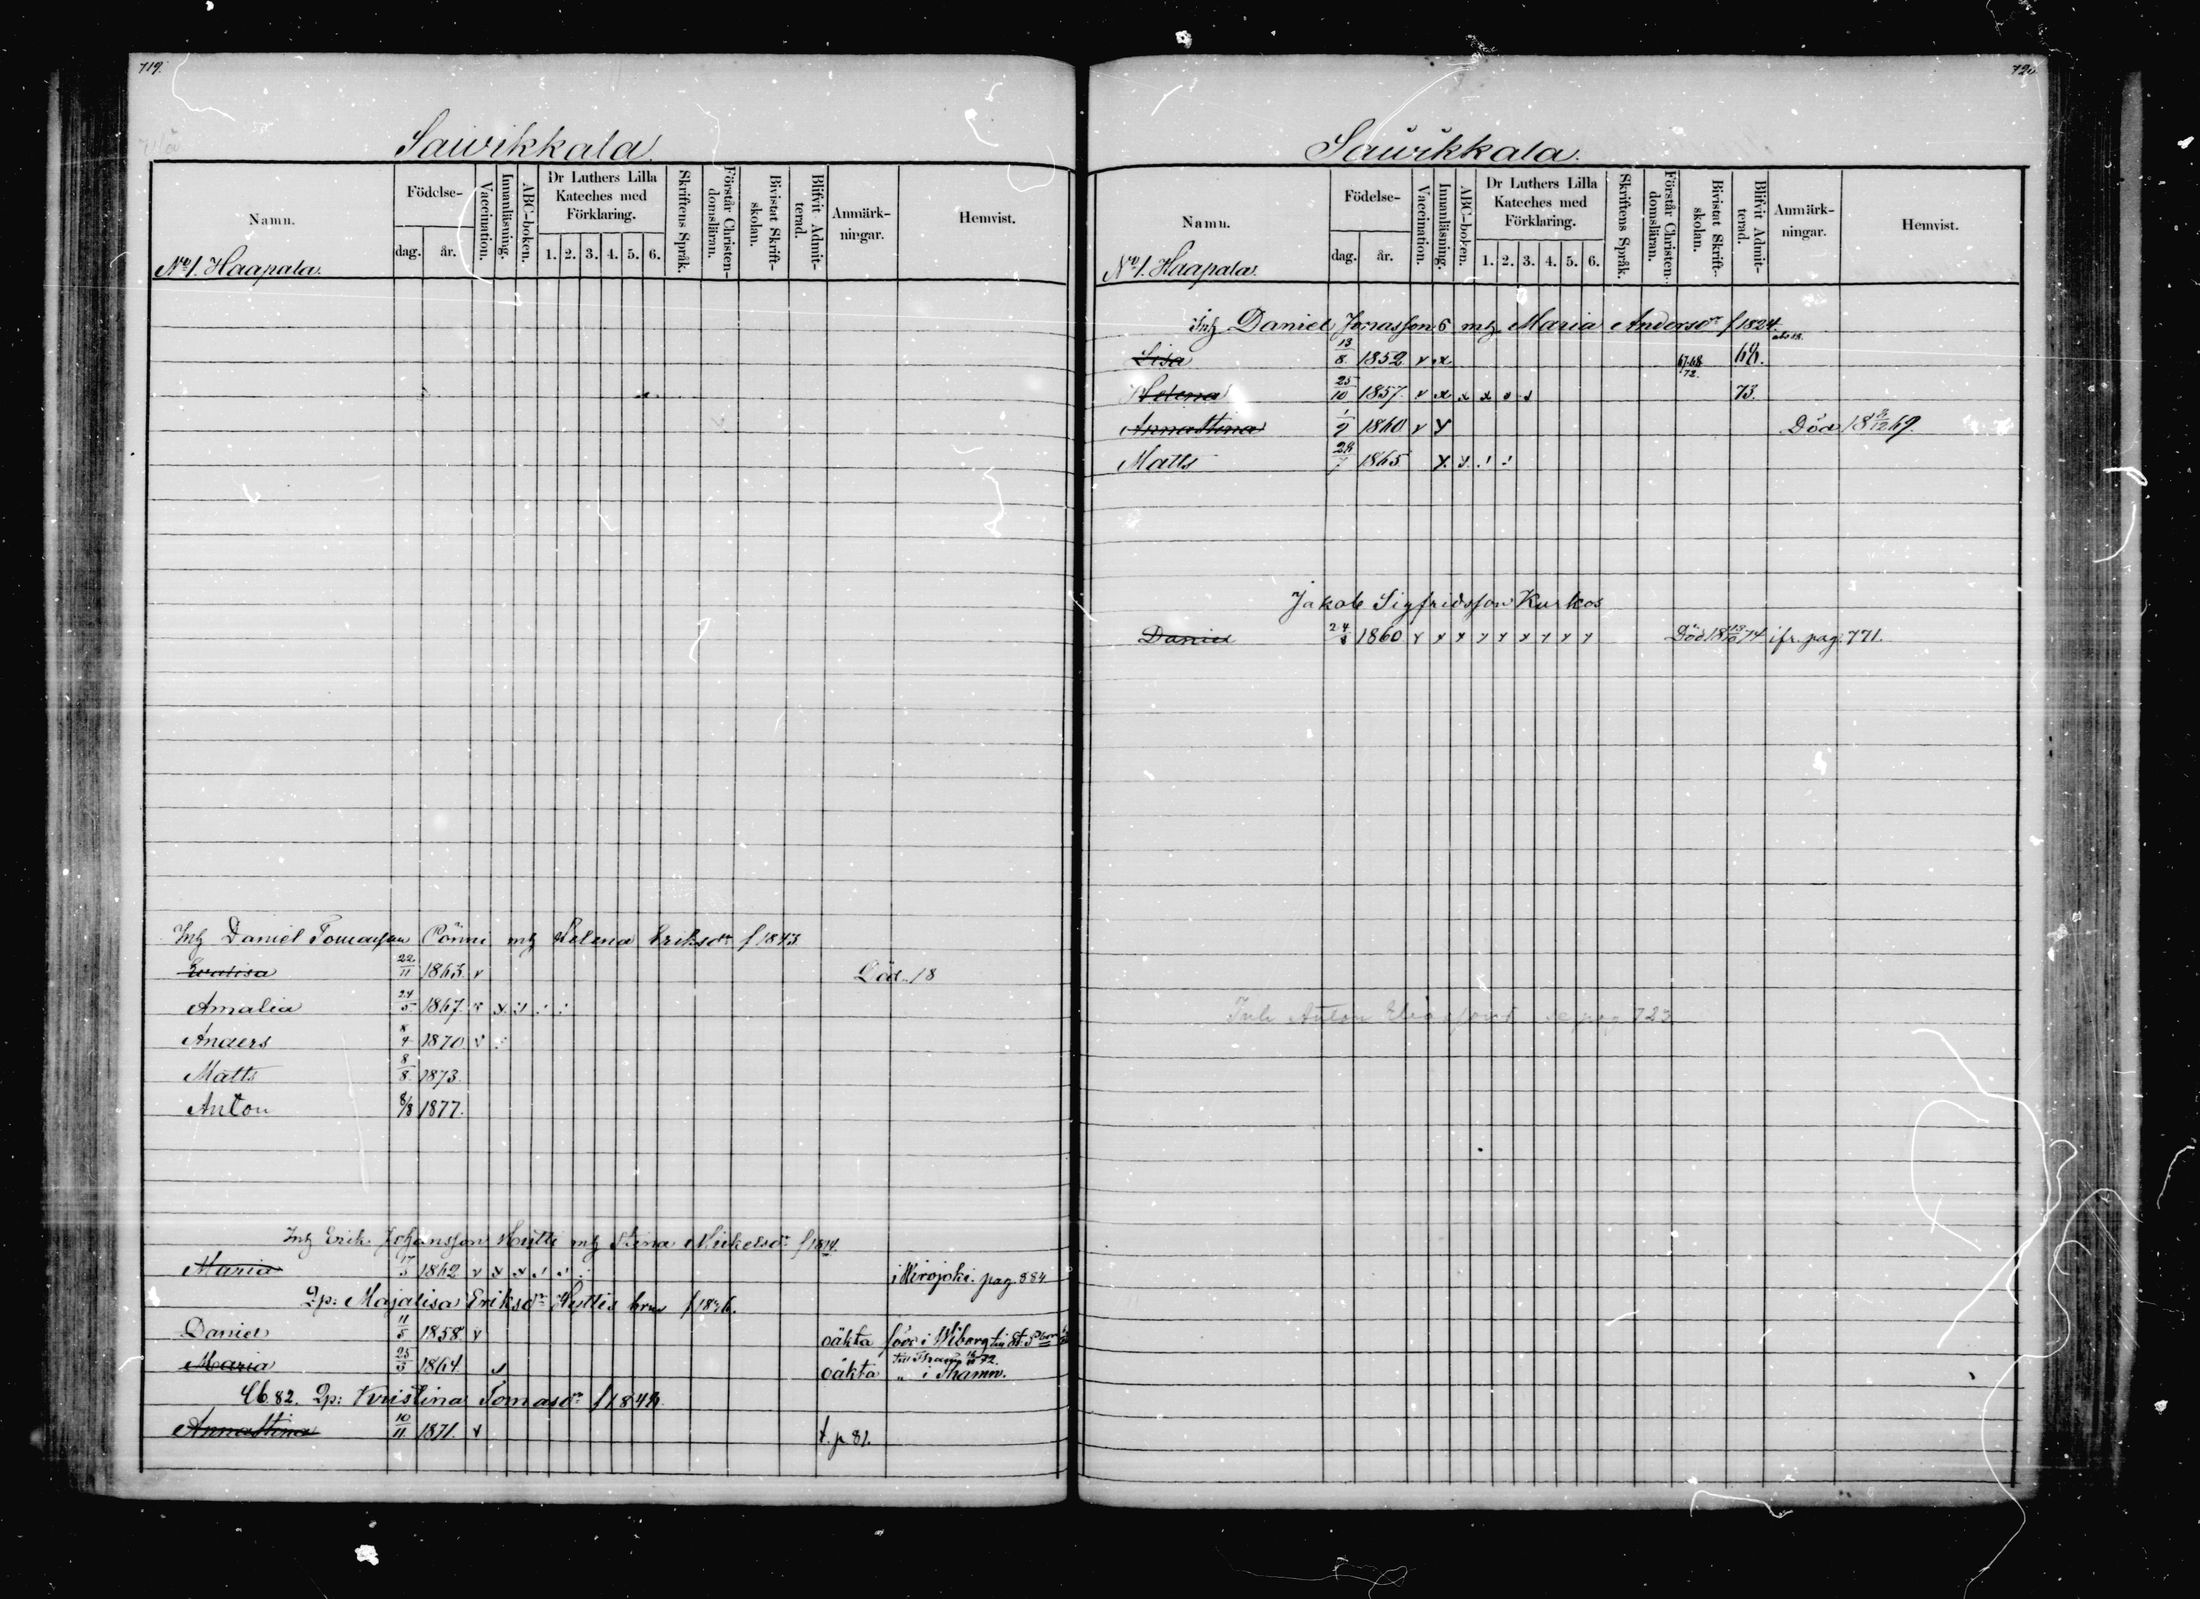 719.
Säivikkala.
Namn.
Födelse-
dag. år.
Vaccination.
Innanläsning.
ABC-boken.
Dr Luthers Lilla Kateches med Förklaring.
1. 2. 3. 4. 5. 6.
Skriftens Språk.
Förstår Christen-domsläran.
Bivistat Skrift-skolan.
Blifvit Admit-terad.
Anmärk-ningar.
Hemvist.
No 1. Haapala.
Inh Daniel Tomasson Pönni mh Helena Eriksdr f 1843
Evalisa 22/11 1863. v Död 18
Amalia 24/5 1867. v x
Anders 8/4 1870 v
Matts 8/8 1873.
Anton 8/8 1877.
Inh Erik Johansson Hutti mh Stina Mickelsdr f 1814.
Maria 17/5 1862 v x x i Wirojoki. pag. 884
Qp: Majalisa Eriksdr Huttis f 1836.
Daniel 11/5 1858 v oäkta född i Wiborg
Maria 25/5 1864 oäkta " i Fhamn.
Qp: Kristina Tomasdr
Annastina 10/11 1871. v t. p 81.
720
Säivikkala.
Namn.
Födelse-
dag. år.
Vaccination.
Innanläsning.
ABC-boken.
Dr Luthers Lilla Kateches med Förklaring.
1. 2. 3. 4. 5. 6.
Skriftens Språk.
Förstår Christen-domsläran.
Bivistat Skrift-skolan.
Blifvit Admit-terad.
Anmärk-ningar.
Hemvist.
No 1. Haapala.
Inh Daniel Jonasson mh Maria Andersdr f 1824.
Lisa 13/8 1852 v x 67.68 68.
Helena 25/10 1857. v x x x 72. 73.
Annastina 1/7 1860 v Död 18 3/12 69.
Matts 28/7 1865
Jakob Sigfridsson Kurkos
Daniel 1860 Död 18 74 jfr. pag. 771.
Inh Anton se pag 723